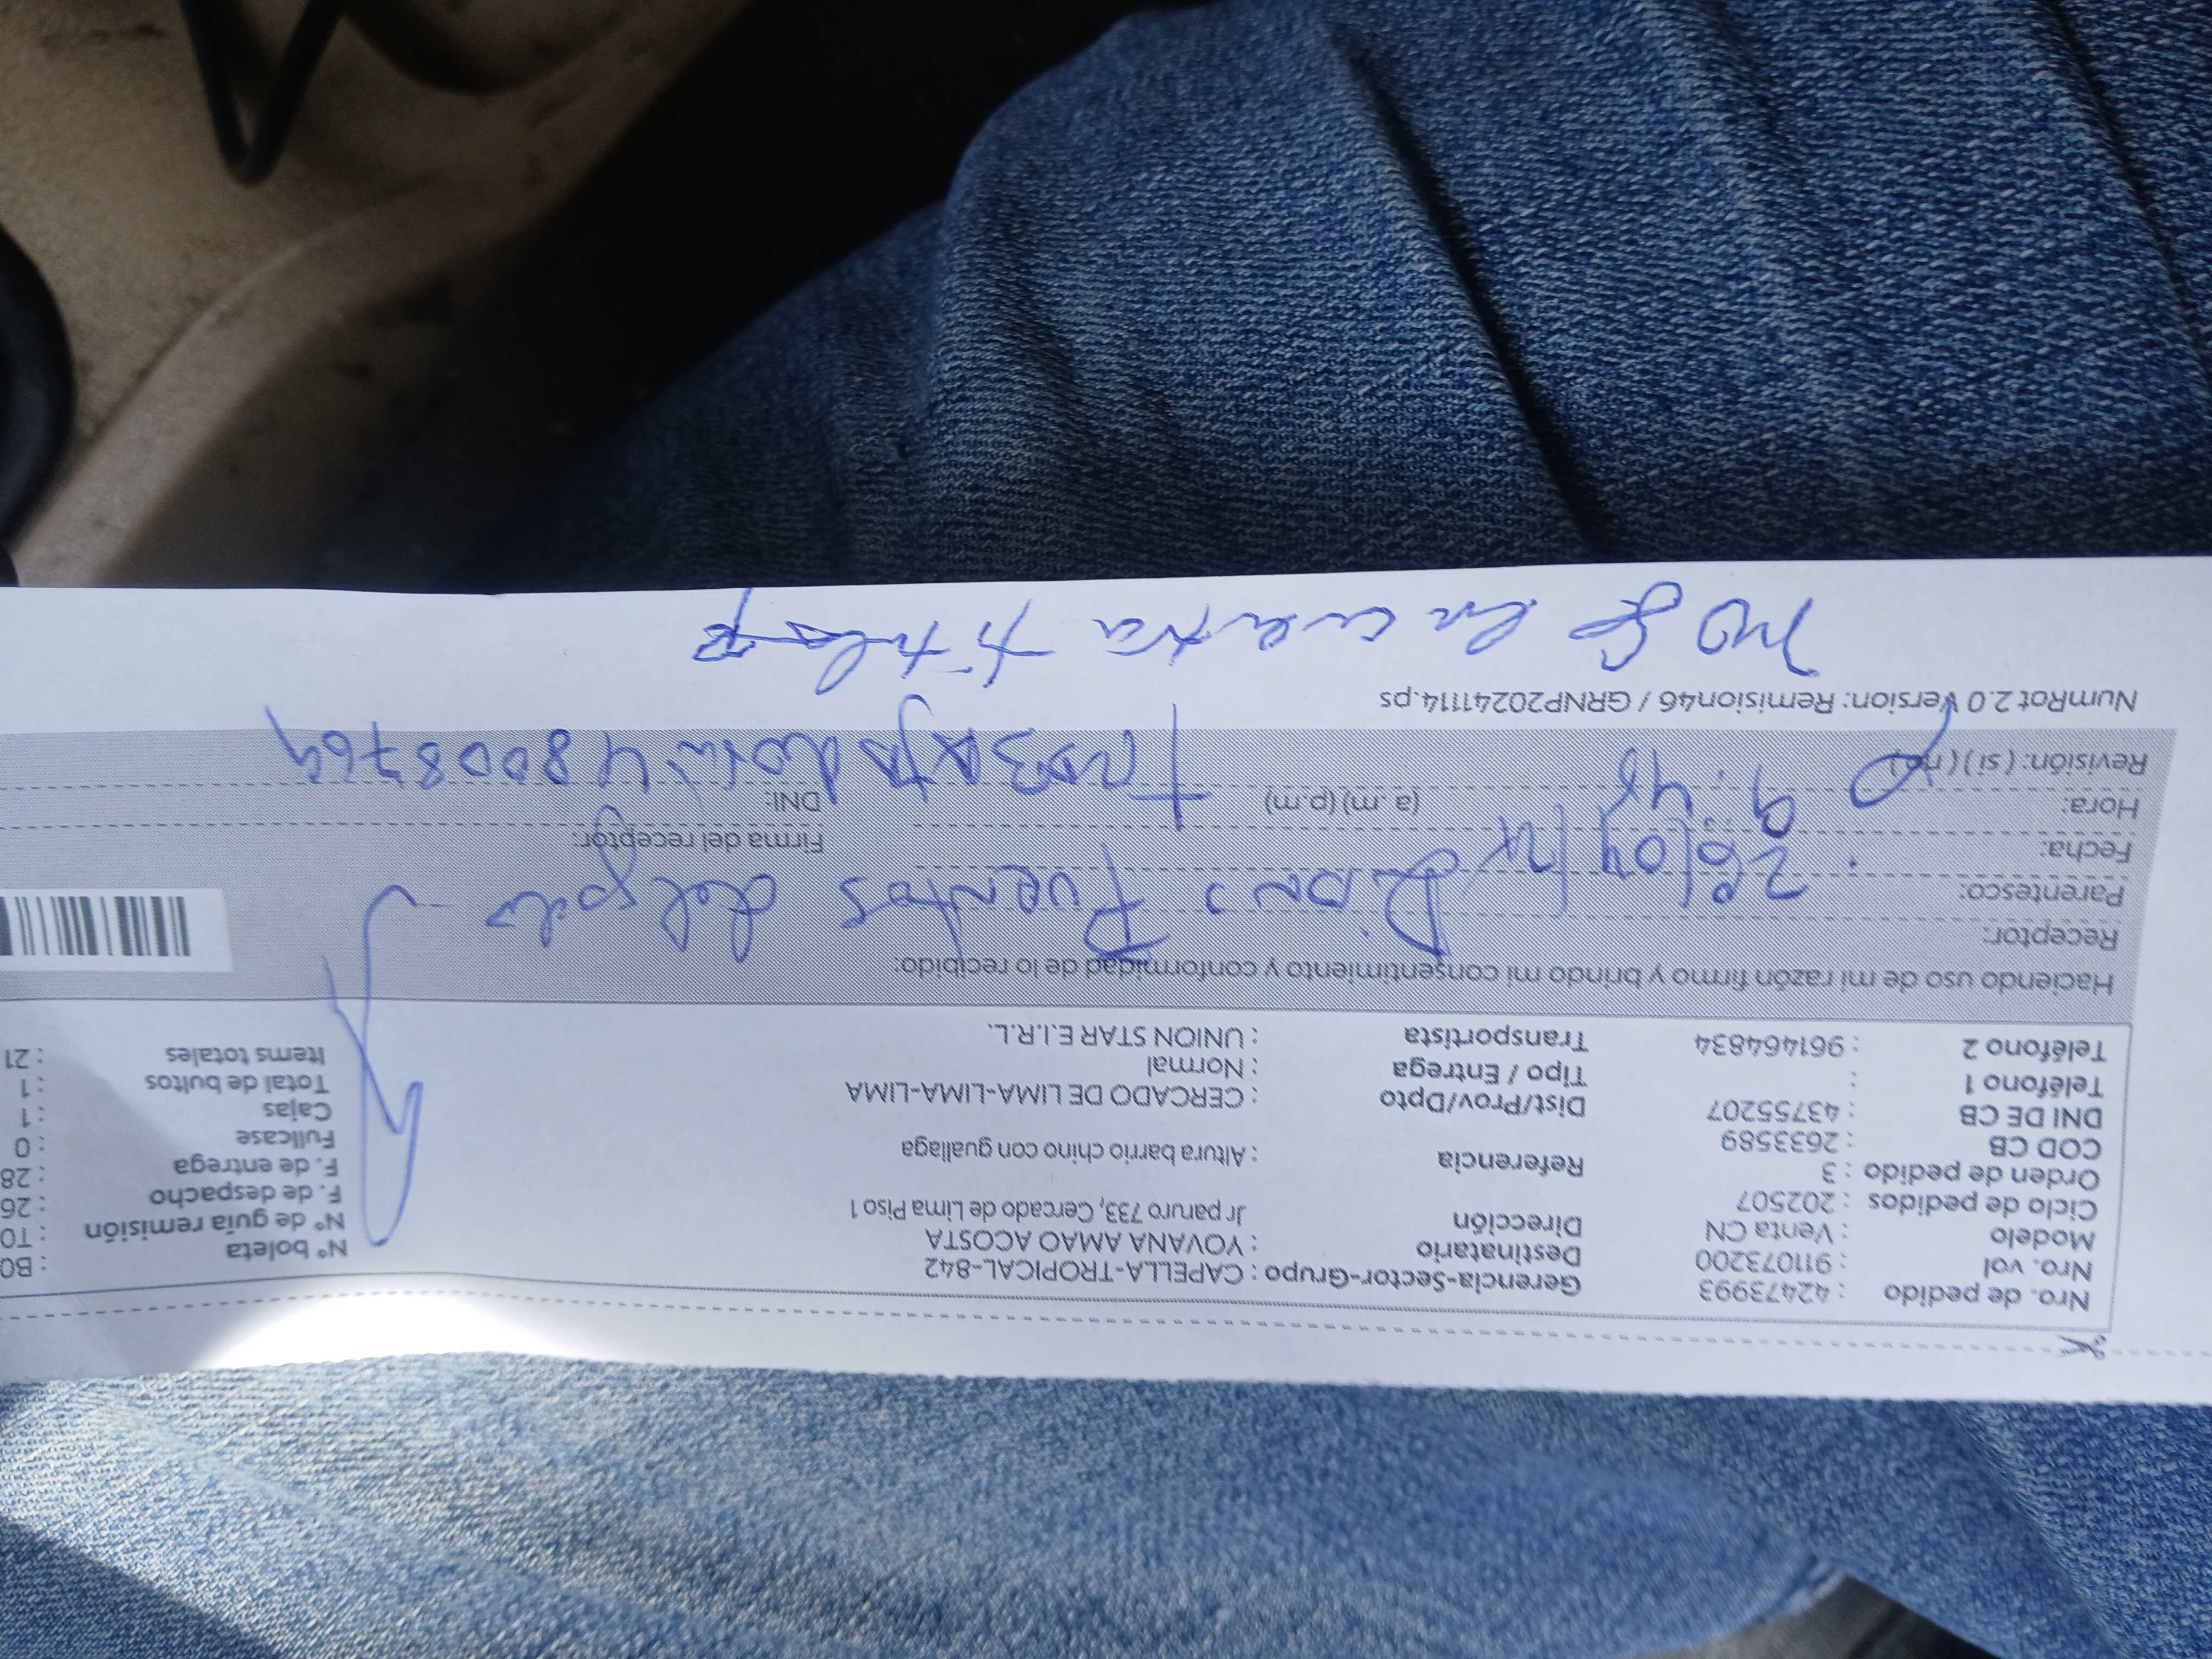 Nro. de pedido : 42473993
Nro. vol : 911073200
Modelo : Venta CN
Ciclo de pedidos : 202507
Orden de pedido : 3
COD CB : 2633589
DNI DE CB : 43755207
Teléfono 1 :
Teléfono 2 : 961464834
Gerencia-Sector-Grupo : CAPELLA-TROPICAL-842
Destinatario : YOVANA AMAO ACOSTA
Dirección Jr paruro 733, Cercado de Lima Piso 1
Referencia : Altura barrio chino con guallaga
Dist/Prov/Dpto : CERCADO DE LIMA-LIMA-LIMA
Tipo / Entrega : Normal
Transportista : UNION STAR E.I.R.L.
Nº boleta : B0
Nº de guía remisión : T0
F. de despacho : 26
F. de entrega : 28
Fullcase : 0
Cajas : 1
Total de bultos : 1
Items totales : 21
Haciendo uso de mi razón firmo y brindo mi consentimiento y conformidad de lo recibido:
Receptor:
Puentes del
Parentesco:
Fecha: 26/04/
Firma del receptor:
Hora: 9:45 (a.m) (p.m)
DNI: 48008764
Revisión: (si) (no)
NumRot 2.0 Version: Remision46 / GRNP20241114.ps
no se en cuentra